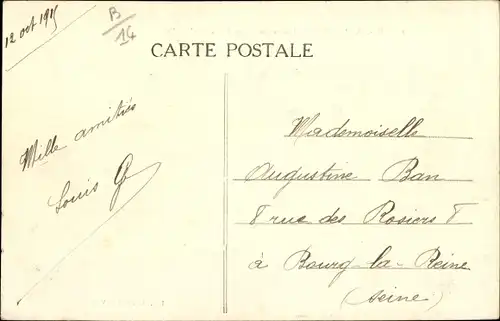 12 oct 1915
B
14
CARTE POSTALE
Mille amitiés
Louis G
Mademoiselle
Augustine Ban
8 rue des Rosiers 8
à Bourg-la-Reine
(Seine)